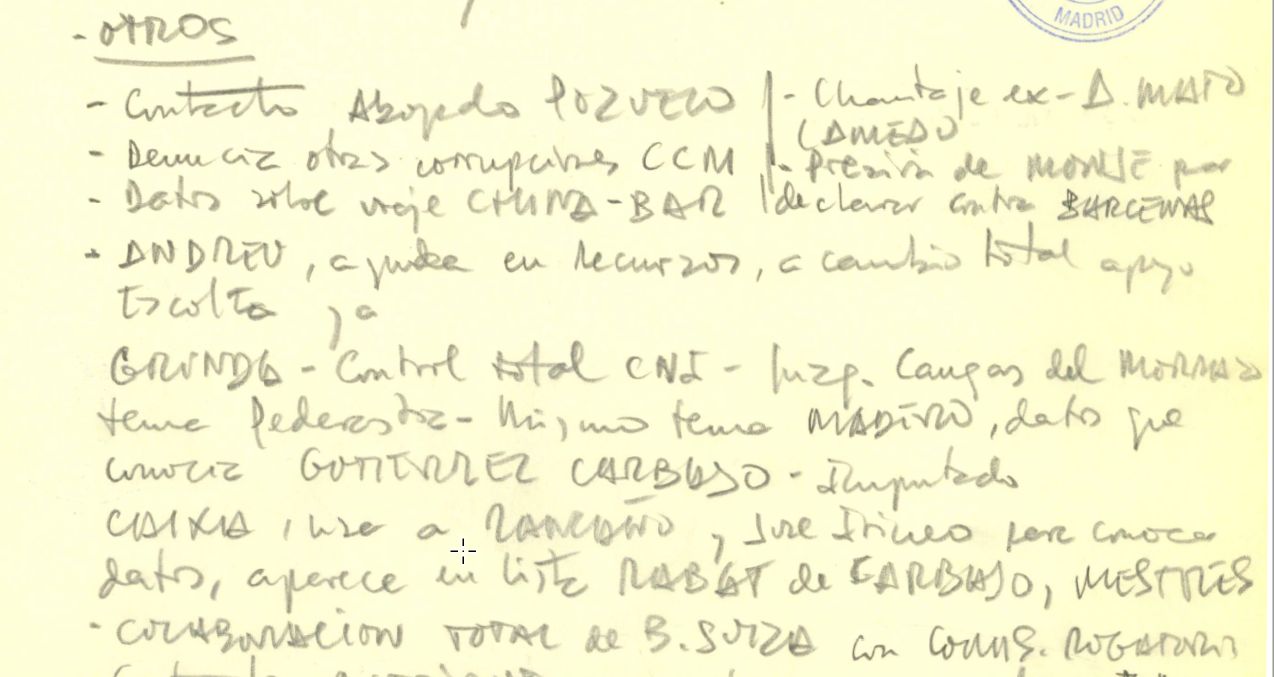 MADRID
- OTROS
- Contacto Abogado POZUELO
- Denuncia otras corrupciones CCM
- Datos sobre viaje CHINA-BAR
- Chantaje ex-A. MATO
CAMEDO
- Presión de MONJE por
declarar contra BARCENAS
- ANDREU, ayuda en recursos, a cambio total apoyo
Escolta y a
GRINDA - Control total CNI - Juzg. Cangas del MORRAZO
tema Pederastia - Mismo tema MADEIRO, datos que
conocía GUTIERREZ CARBAJO - Imputado
CAIXA, usa a RANCAÑO y José Irineo para conocer
datos, aparece en lista RABAT de CARBAJO, MESTRES
- COLABORACION TOTAL de B. SUIZA con COMIS. ROGATORIAS